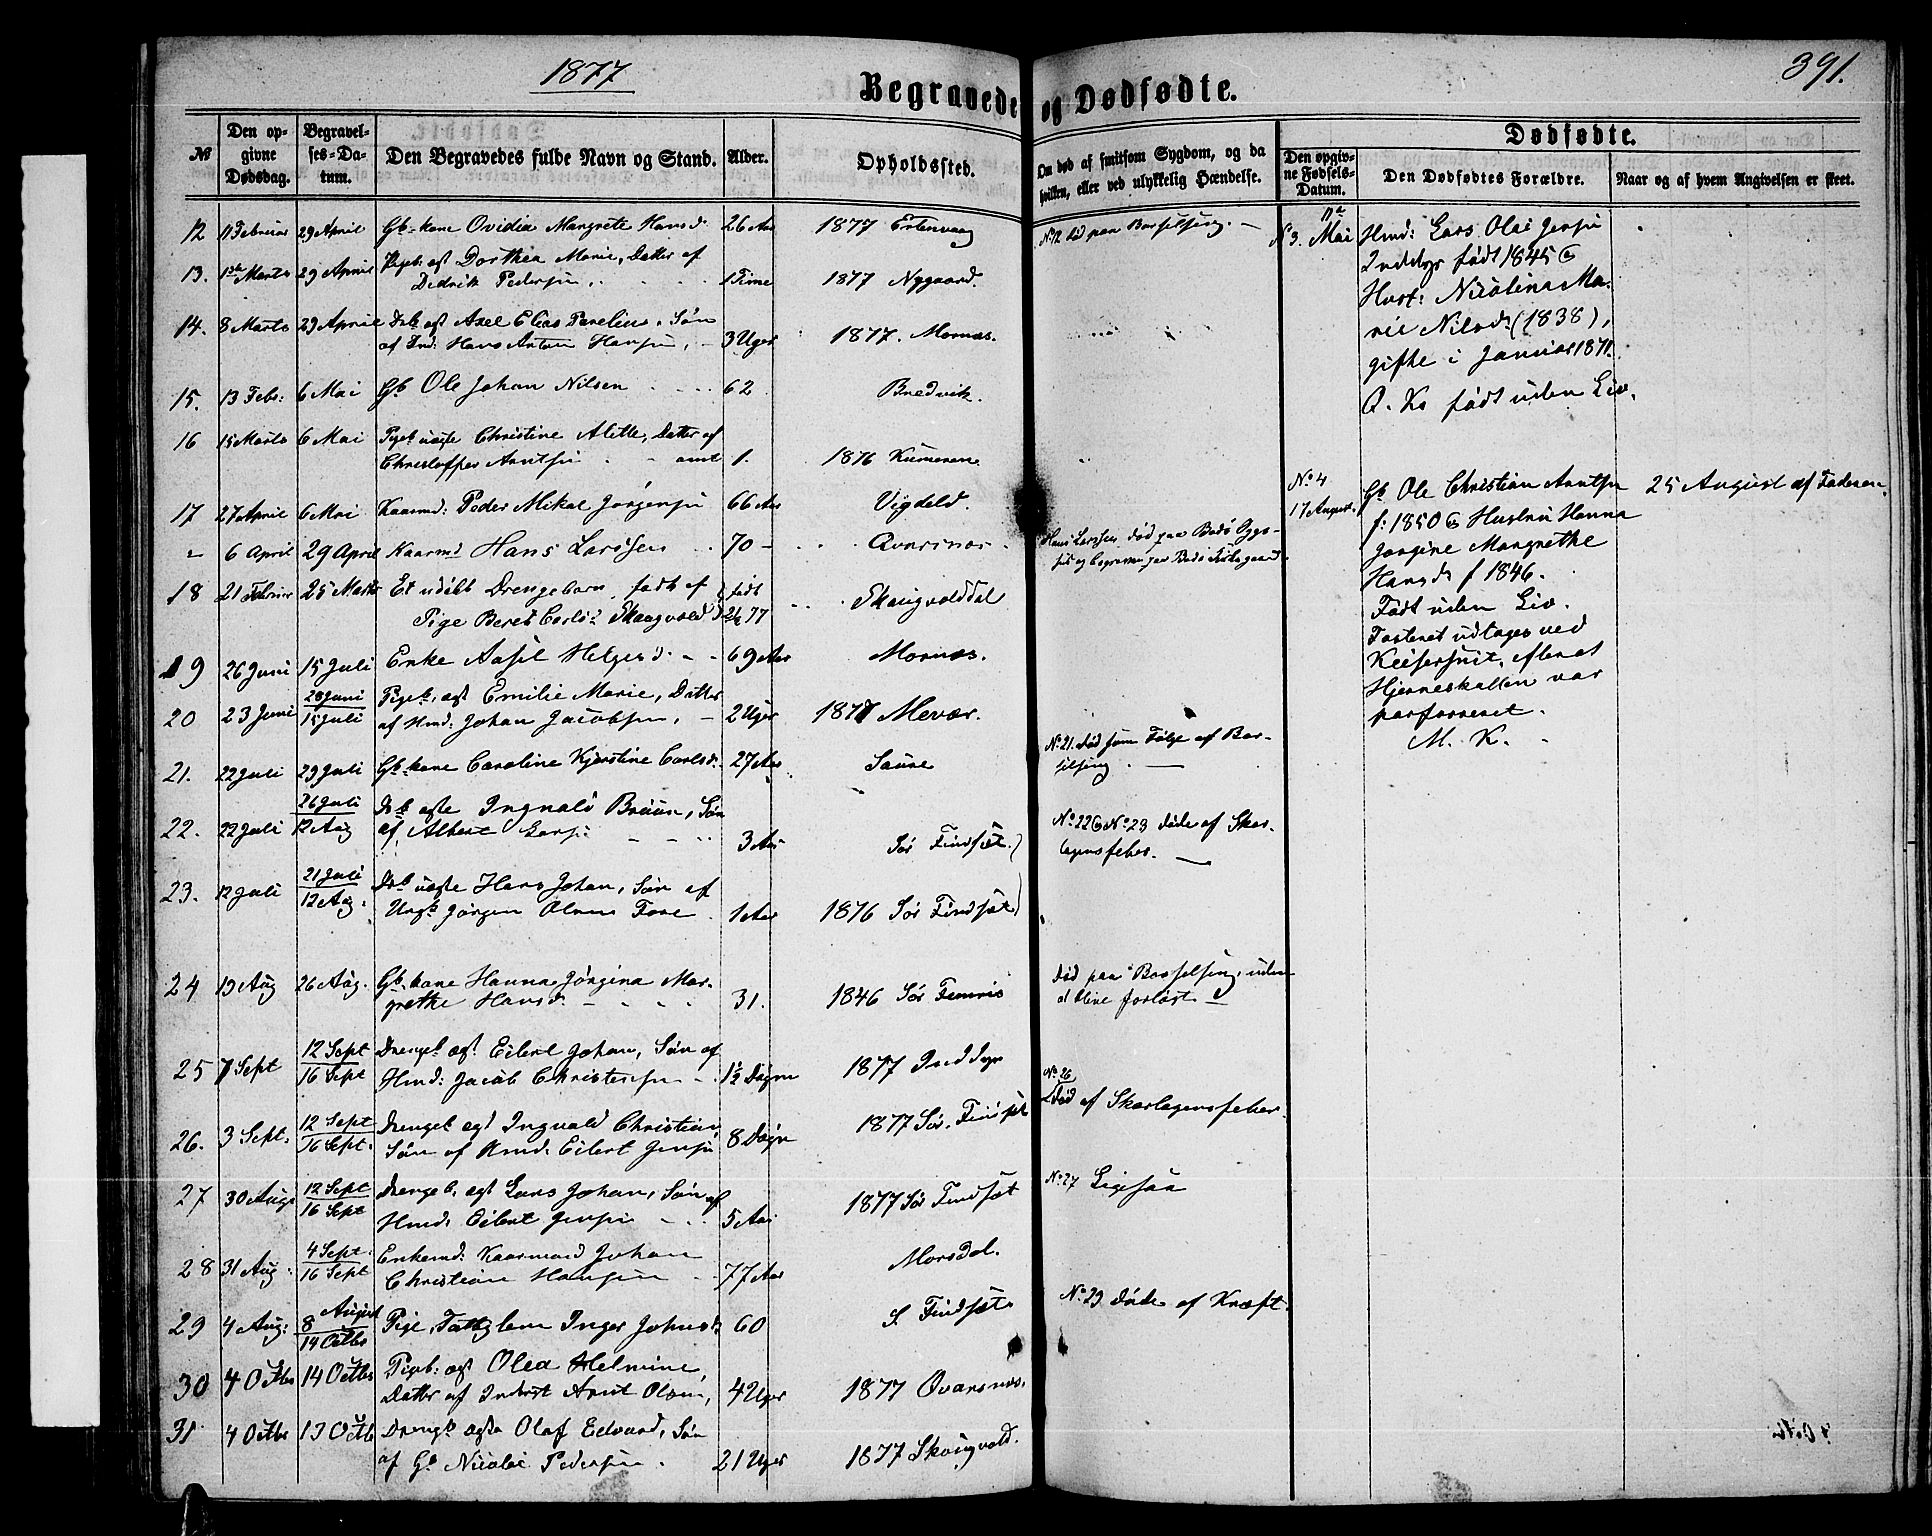 1877
Begravede og Dødfødte.
391.
№
Den opgivne Dødsdag.
Begravelses-Datum.
Den Begravedes fulde Navn og Stand.
Alder.
Opholdssted.
Om død af smitsom Sygdom, og da hvilken, eller ved ulykkelig Hændelse.
Dødfødte.
Den opgivne Fødsels-Datum.
Den Dødfødtes Forældre.
Naar og af hvem Angivelsen er skeet.
12 11 Februar 29 April Gb-kone Ovidia Margrete Hansd. 26 Aar 1877 Estenvaag No 12 død paa Barselseng. —
13. 1ste Marts 29 April Pigeb. ægt Dorthea Marie, Datter af
Didrik Pedersen, 1 Time 1877 Nygaard.
14. 8 Marts 29 April Drb ægt Axel Elias Parelius, Søn
af Ind: Hans Anton Hansen, 3 Uger 1877. Mornæs.
15. 13 Febr: 6 Mai Gb Ole Johan Nilsen 62 Bredvik.
16 15 Marts 6 Mai Pigeb uægte Christine Alette, Datter af
Christoffer Arntsen 1. 1876 Kumeren
17 27 April 6 Mai Kaarmd: Peder Mikal Jørgensen 66 Aar Vigdeld.
" 6 April 29 April Kaarmd Hans Larssen 70 — Qvarsnæs. Hans Larssen død paa Bodø
og begraven paa Bodø Kirkegaard.
18 21 Februar 25 Marts Et udøbt Drengebarn, født af født
Pige Beret Carlsd Skaugvold 77 Skaugvolddal
19 26 Juni 15 Juli Enke Aasel Helgesd. 69 Aar Mornæs.
20 23 Juni 28 Juni
15 Juli Pigeb. ægt Emilie Marie, Datter
af Hmd: Johan Jacobsen, 2 Uger 1877 Mevær.
21. 22 Juli 29 Juli Gb-kone Caroline Kjerstine Carlsd. 27 Aar Saure No. 21. død som Følge af Bar-
selseng. —
22. 22 Juli 26 Juli
12 Aug Drb ægte Ingvald Bruun, Søn
af Albert Larsen 3 Aar Sør Findsæt. No. 22 & No. 23 døde af Skar-
lagensfeber. —
23. 12 Juli 21 Juli
12 Aug. Drb uægte Hans Johan, Søn af
Ungk. Jørgen Olsen Fore 1 Aar 1876 Sør Findsæt
24 19 Aug 26 Aug. Gb.kone Hanna Jørgina Mar-
grethe Hansd. 31. 1846 Sør Femris Død paa Barselseng, uden
at blive forløst —
25 7 Sept 12 Sept
16 Sept Drengeb ægt. Eilert Johan, Søn af
Hmd: Jacob Christensen 1½ Døgn 1877 Inddyr
26. 3 Sept. 12 Sept
16 Sept. Drengeb ægt Ingvald Christian,
Søn af Hmd. Eilert Jensen 8 Døgn 1877 Sør. Findsæt No. 26
Død af Skarlagensfeber.
27 30 Aug. 12 Sept
16 Sept Drengeb. ægt Lars Johan, Søn af
Hmd: Eilert Jensen 5 Aar 1877 Sør Findsæt No. 27 Ligesaa
28 31 Aug. 4 Sept.
16 Sept Enkemd: Kaarmand Johan
Christian Hansen 77 Aar Morsdal.
29 4 Aug: 8 August
14 Octbr Pige, Fattiglem Inger Johnsd. 60 S. Findsæt No. 29 døde af Kræft.
30 4 Octbr 14 Octbr Pigeb: ægt Olea Helmine,
Datter af Inderst Arnt Olsen, 4 Uger 1877 Qvarsnæs.
31 4 Octbr 13 Octb Drengeb ægte Olaf Edvard, Søn
af Gb Nicolai Pedersen. 21 Uger 1877 Skaugvold.
No 3. Mai Hmd: Lars Olai Jensen
Inddyr født 1845 &
Hust: Nicolina Ma-
rie Nilsd. (1838),
gifte i Januar 1871.
Q. K. født uden Liv.
No. 4
17 August. Gb Ole Christian Arntsen 25 August af Faderen.
f: 1850 & Hustru Hanna
Jørgine Margrethe
Hansd. f 1846.
Født uden Liv.
Fosteret udtages ved
Keisersnit, efter at
Hjerneskallen var
perforeret.
M. K.